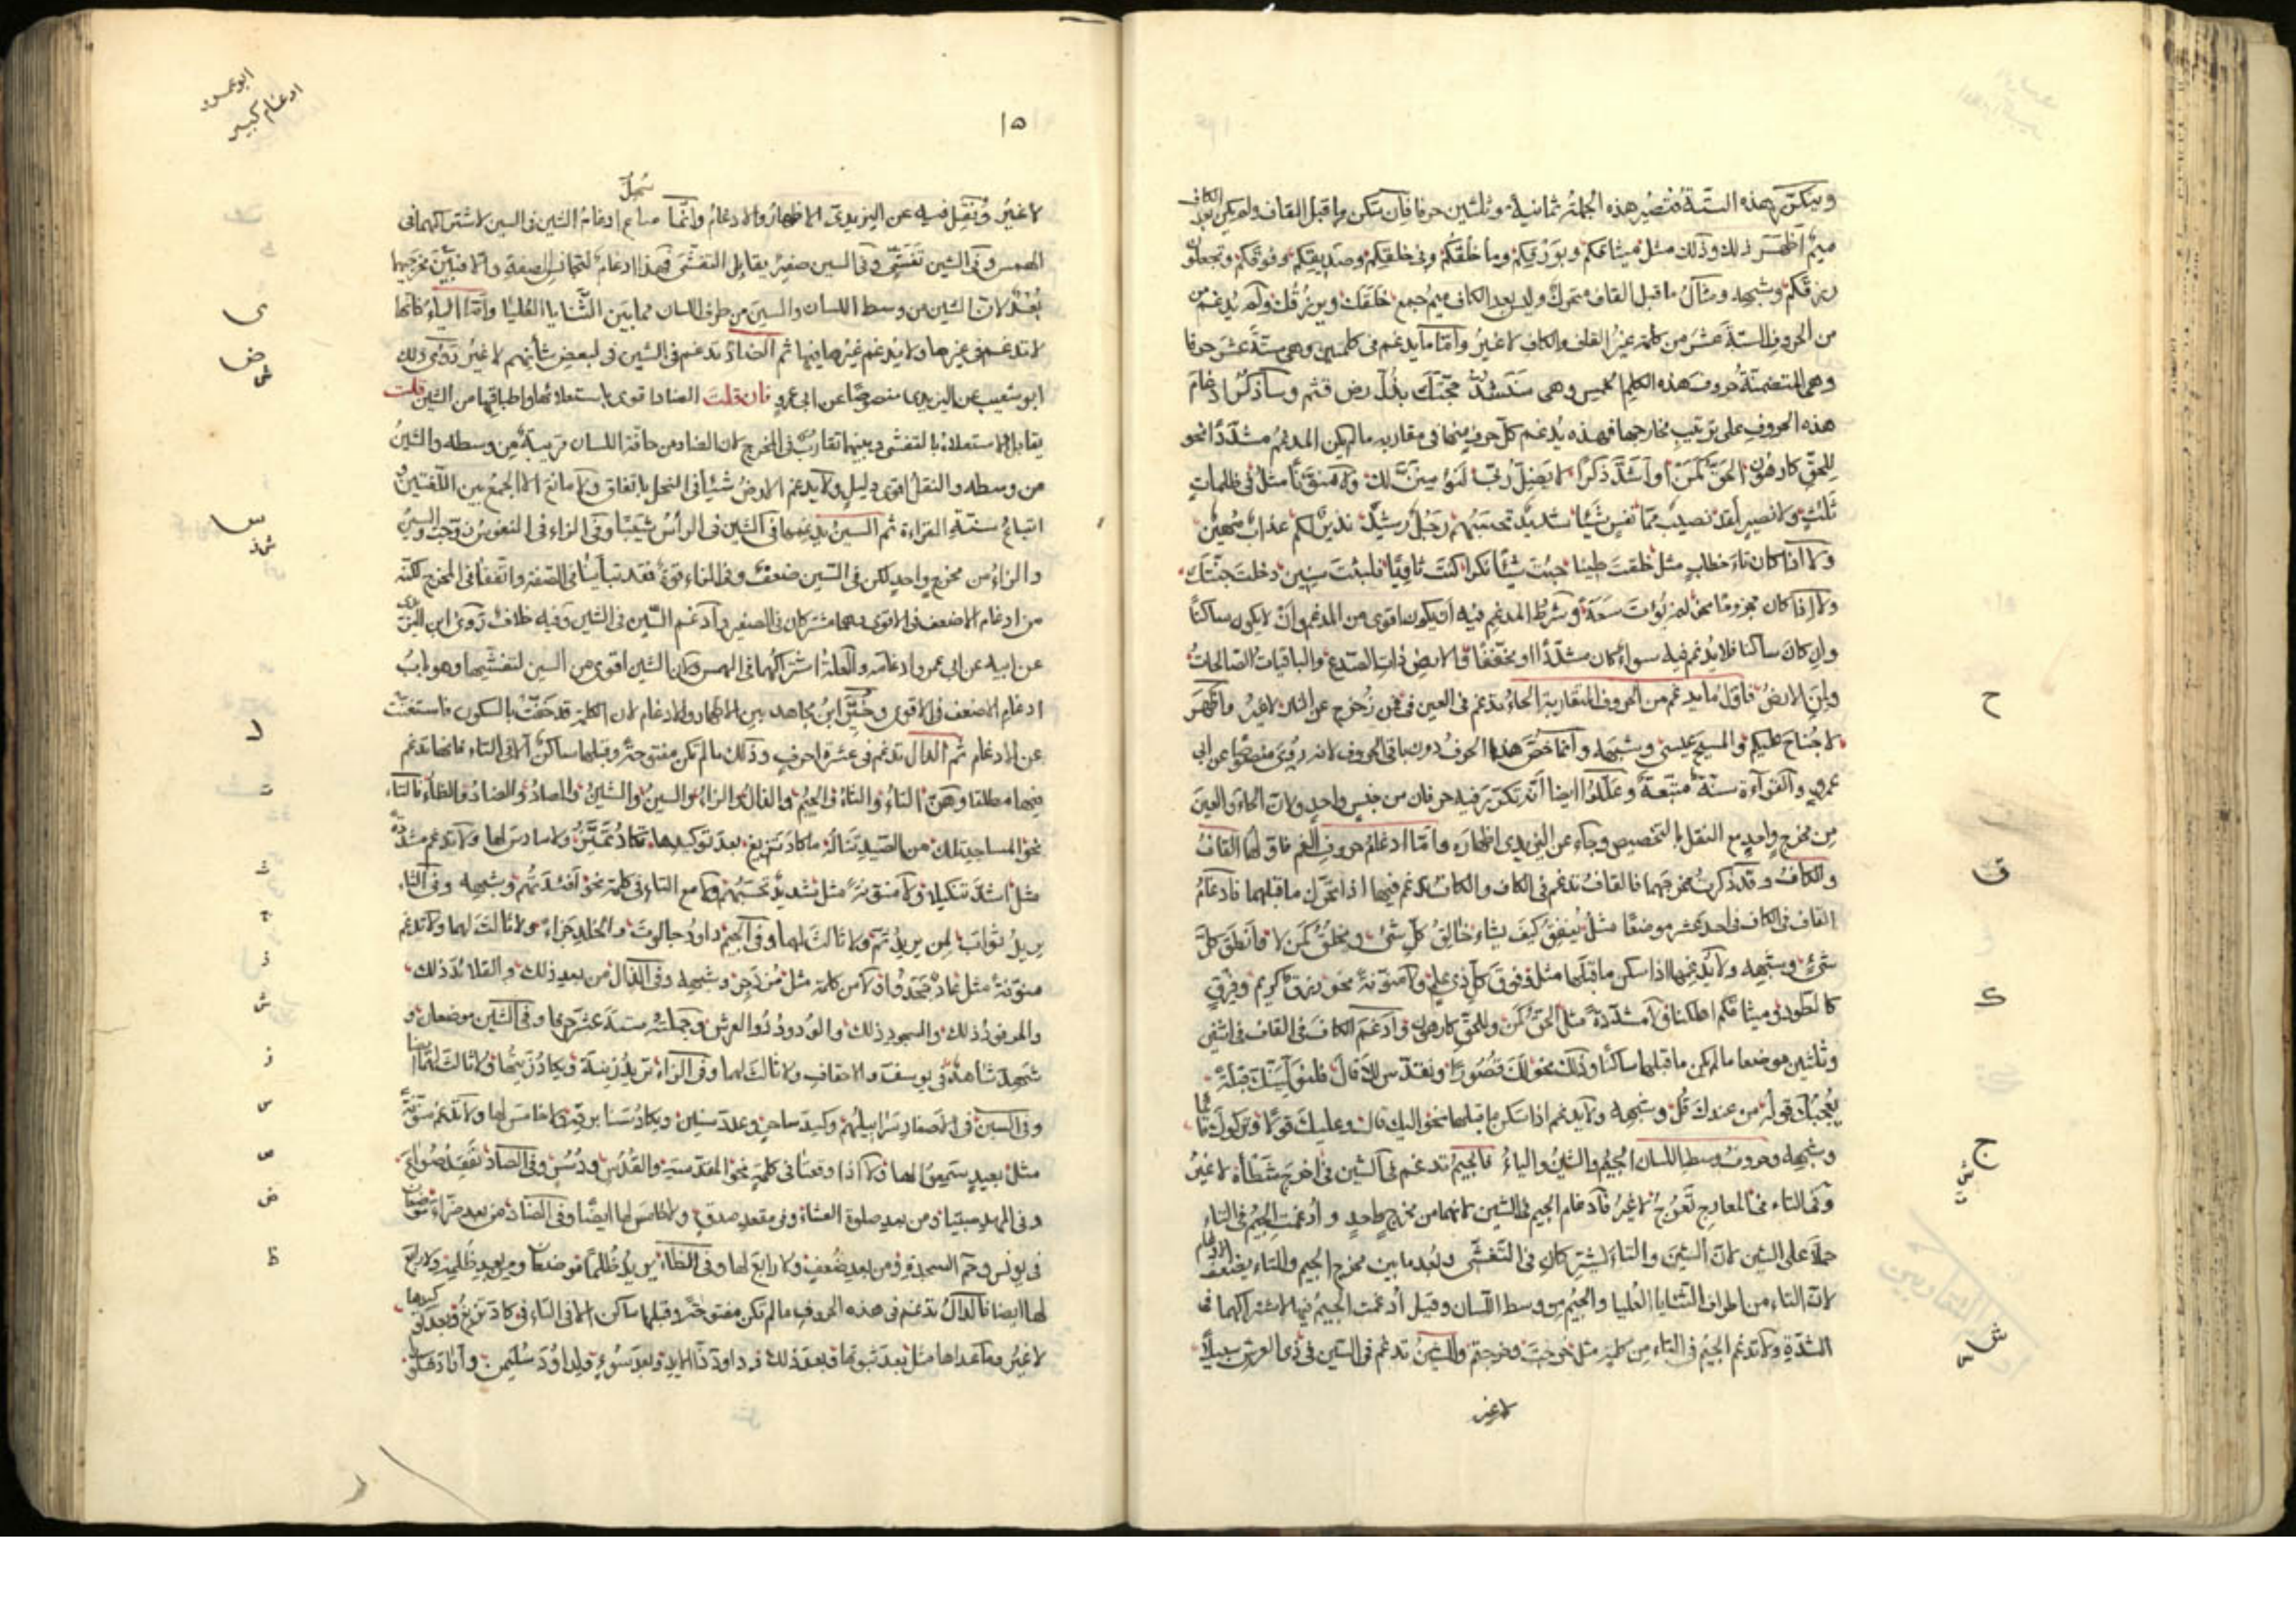 ويتكرر هذه الستة فتصير هذه الجملة ثمانية وثلثين حرفا فان سكن ما قبل القاف ولم يكن بعد الكاف
ميم اظهر ذلك وذلك مثل ميثاقكم وبورقكم وما خلقكم وفى خلقكم وصديقكم وفوقكم وتجعلون
رزقكم وشبهه ومثال ما قبل القاف متحرك وليس بعد الكاف ميم جمع خلقك ويرزقك ولم يدغم
من الحروف الستة عشر من كلمة غير القاف والكاف لا غير واما ما يدغم فى كلمتين وهى ستة عشر حرفا
وهى المتضمنة حروف هذه الكلم الخمس وهى سنشد حجتك بذل رض قثم وساذكر ادغام
هذه الحروف على ترتيب مخارجها فهذه يدغم كل حرف منها فى مقاربه ما لم يكن المدغم مشددا نحو
للحق كارهون الحق كمن او اشد ذكرا لا يضل ربى لنؤمنن لك ولا منونا مثل فى ظلمات
ثلث ولا نصير لقد نصيب مما نفس شيئا شديد تحسبهم رجل رشيد نذير لكم عذاب مهين
ولا اذا كان تاء خطاب مثل خلقت طينا جئت شيئا نكرا كنت ثاويا فلبثت سنين دخلت جنتك
ولا اذا كان مجزوما نحو لم يؤت سعة وشرط المدغم فيه ان يكون اقوى من المدغم وان لا يكون ساكنا
وان كان ساكنا فلا يدغم فيه سواء كان مشددا او مخففا والارض ذات الصدع والباقيات الصالحات
ولمن الارض فاول ما يدغم من الحروف المتقاربة الحاء تدغم فى العين فى فمن زحزح عن النار لا غير واظهر
لا جناح عليكم والمسيح عيسى وشبهه وانما خص هذا الحرف دون باقى الحروف لانه روى منصوصا عن ابى
عمرو والقراءة سنة متبعة وعللوا ايضا انه تكرر فيه حرفان من جنس واحد ولان الحاء والعين
من مخرج واحد مع النقل بالتخصيص وجاء عن اليزيدى اظهاره واما ادغام حروف الفم فاولها القاف
والكاف وقد ذكرت مخرجهما فالقاف تدغم فى الكاف والكاف تدغم فيها اذا تحرك ما قبلهما فادغام
القاف فى الكاف فى احد عشر موضعا مثل ينفق كيف يشاء خالق كل شئ ويخلق كمن لا فانطق كل
شئ وشبهه ولا يدغمها اذا سكن ما قبلها مثل وفوق كل ذى علم ولا منونة نحو رزق كريم وفرق
كالطود فى ميثاقكم اظكنا ولا مشددة مثل الحق كمن وللحق كارهون وادغم الكاف فى القاف فى اثنى
وثلثين موضعا ما لم يكن ما قبلها ساكنا وذلك نحو لك قصورا ونقدس لك قال فلنولينك قبلة
يعجبك قوله من عندك قل وشبهه ولا يدغم اذا سكن ما قبلها نحو اليك قال وعليك قولا وتركوك قائما
وشبهه وحروف وسط اللسان الجيم والشين والياء فالجيم تدغم فى الشين فى اخرج شطأه لا غير
وفى التاء فى المعارج تعرج لا غير فادغام الجيم فى الشين لانهما من مخرج واحد وادغمت الجيم فى التاء
حملا على الشين لان الشين والتاء يشتركان فى التفشى ولبعد ما بين مخرج الجيم والتاء يضعف الادغام
لان التاء من اطراف الثنايا العليا والجيم من وسط اللسان وقيل ادغمت الجيم فيها لاشتراكهما فى
الشدة ولا تدغم الجيم فى التاء من كلمة مثل خرجت وخرجتم والشين تدغم فى السين فى ذى العرش سبيلا
لا غير
ح
ق
ك
ج
ش ت
ش
س
ابو عمرو
ادغام كبير
١٥
لا غير ونقل فيه عن اليزيدى الاظهار والادغام وانما ساغ ادغام الشين فى السين لاشتراكهما فى
الهمس وفى الشين تفشى وفى السين صفير يقابل التفشى فهذا ادغام لتجانس الصفة والا فبين مخرجيهما
بعد لان الشين من وسط اللسان والسين من طرف اللسان مما بين الثنايا العليا واما الياء فانها
لا تدغم فى غيرها ولا يدغم غيرها فيها ثم الضاد تدغم فى الشين فى لبعض شأنهم لا غير روى ذلك
ابو شعيب عن اليزيدى منصوصا عن ابى عمرو فان قلت الضاد اقوى باستعلائها واطباقها من الشين قلت
يقابل الاستعلاء بالتفشى وبينهما تقارب فى المخرج لان الضاد من حافة اللسان قريبة من وسطه والشين
من وسطه والنقل اقوى دليل ولا يدغم الارض شيئا فى النحل باتفاق ولا مانع الا الجمع بين اللغتين و
اتباع سنة القراءة ثم السين يدغمها فى الشين فى الرأس شيبا وفى الزاء فى النفوس زوجت والسين
والزاء من مخرج واحد لكن فى السين ضعف وفى الزاء قوة فقد تباينا فى الصفة واتفقا فى المخرج لكنه
من ادغام الاضعف فى الاقوى وهما مشتركان فى الصفير وادغم السين فى الشين وفيه خلاف روى ابن اليزيدى
عن ابيه عن ابى عمرو ادغامه والعلة اشتراكهما فى الهمس ولان الشين اقوى من السين لتفشيها وهو باب
ادغام الاضعف فى الاقوى وخير ابن مجاهد بين الاظهار والادغام لان الكلمة قد خفت بالسكون فاستغنت
عن الادغام ثم الدال تدغم فى عشرة احرف وذلك ما لم تكن مفتوحة وقبلها ساكن الا فى التاء فانها تدغم
فيها مطلقا وهى التاء والثاء والجيم والذال والزاء والسين والشين والصاد والضاد والظاء فالتاء
نحو المساجد تلك من الصيد تناله ما كاد تزيغ بعد توكيدها تكاد تميز ولا سادس لها ولا تدغم مشددة
مثل اشد تنكيلا ولا منونة مثل شديد تحسبهم ولا مع التاء فى كلمة نحو افئدتهم وشبهه وفى الثاء
يريد ثواب لمن نريد ثم ولا ثالث لهما وفى الجيم داود جالوت والخلد جزاء ولا ثالث لهما ولا تدغم
منونة مثل عاد جحدوا ولا من كلمة مثل مزدجر وشبهه وفى الذال من بعد ذلك والقلائد ذلك
والمرفود ذلك والسجود ذلك والودود ذو العرش وجملته ستة عشر حرفا وفى الشين موضعان و
شهد شاهد فى يوسف والاحقاف ولا ثالث لهما وفى الزاء تريد زينة ويكاد زيتها ولا ثالث لهما ايضا
وفى السين فى الاصفاد سرابيلهم وكيد ساحر وعدد سنين ويكاد سنا برقه ولا خامس لها ولا تدغم منونة
مثل بعيد سمعوا لها ولا اذا وقعتا فى كلمة نحو المقدسة والقدس ودسر وفى الصاد نفقد صواع
وفى المهد صبيا ومن بعد صلوة العشاء وفى مقعد صدق ولا خامس لها ايضا وفى الضاد من بعد ضراء موضعان
فى يونس وحم السجدة ومن بعد ضعف ولا رابع لها وفى الظاء يريد ظلما موضعان ومن بعد ظلمه ولا رابع
لها ايضا فالدال تدغم فى هذه الحروف ما لم تكن مفتوحة وقبلها ساكن الا فى التاء فى كاد تزيغ وبعد توكيدها
لا غير وما عداها مثل بعد ثبوتها وبعد ذلك وداود ذا الايد وبعد سوء ولداود سليمن
ى
ض
ش
س
ش ز
د
ت
ث
ج
ذ
ش
ز
س
ص
ض
ظ